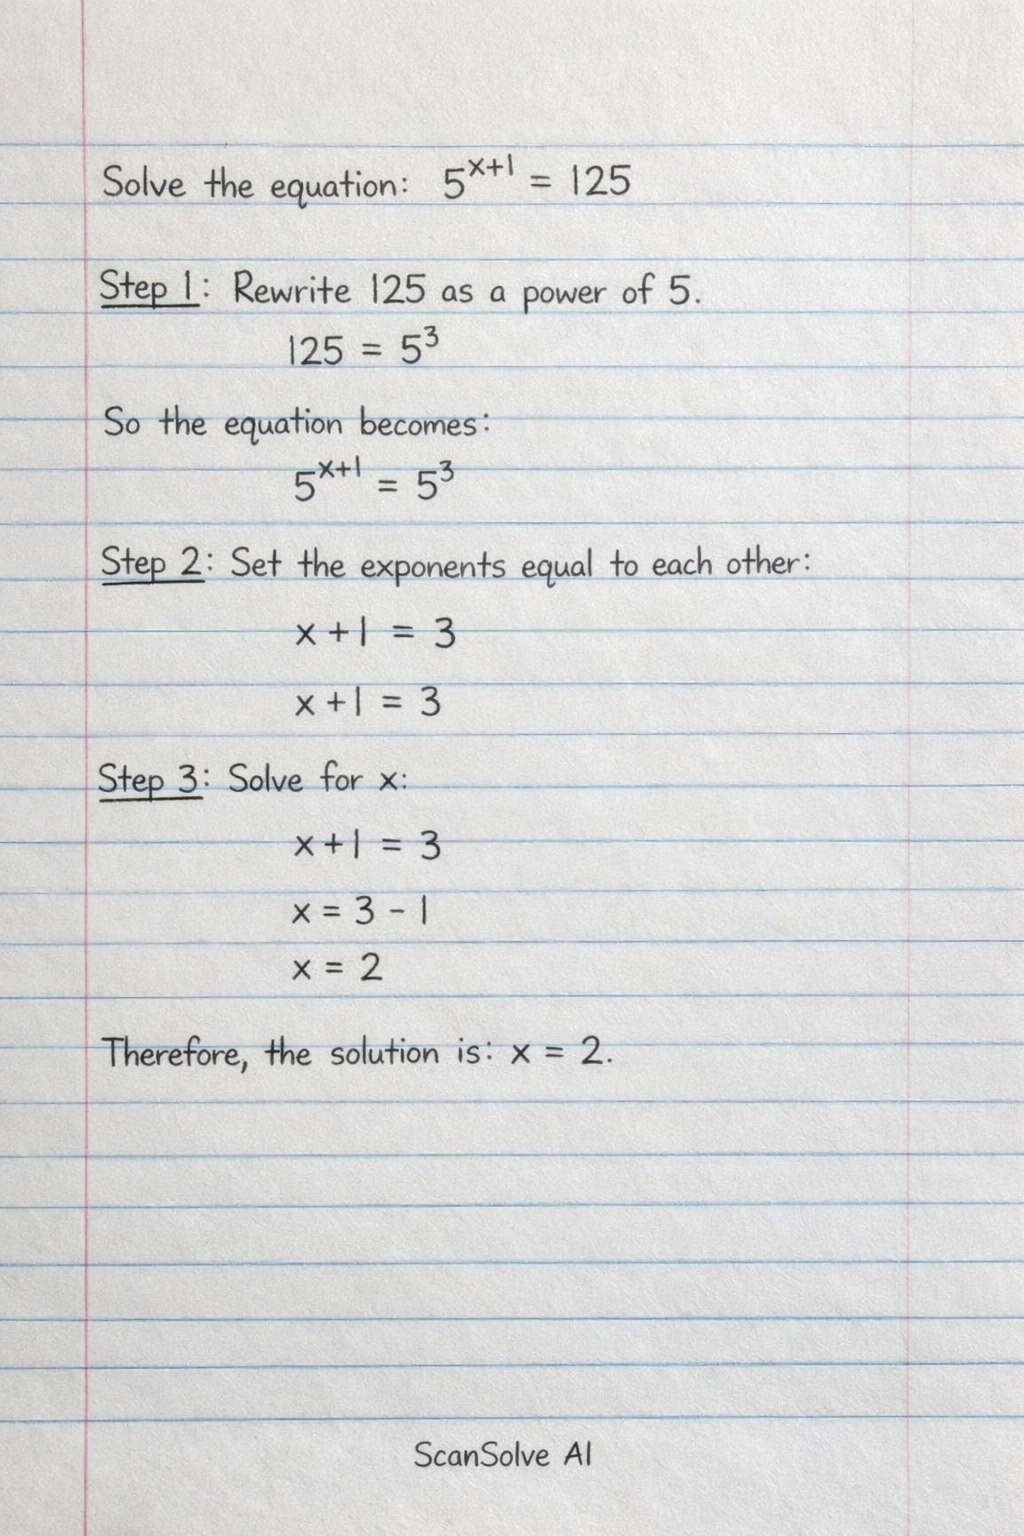 Solve the equation: 5^{x+1} = 125
Step 1: Rewrite 125 as a power of 5.
125 = 5³
So the equation becomes:
5^{x+1} = 5³
Step 2: Set the exponents equal to each other:
x + 1 = 3
x + 1 = 3
Step 3: Solve for x:
x + 1 = 3
x = 3 - 1
x = 2
Therefore, the solution is: x = 2.
ScanSolve AI